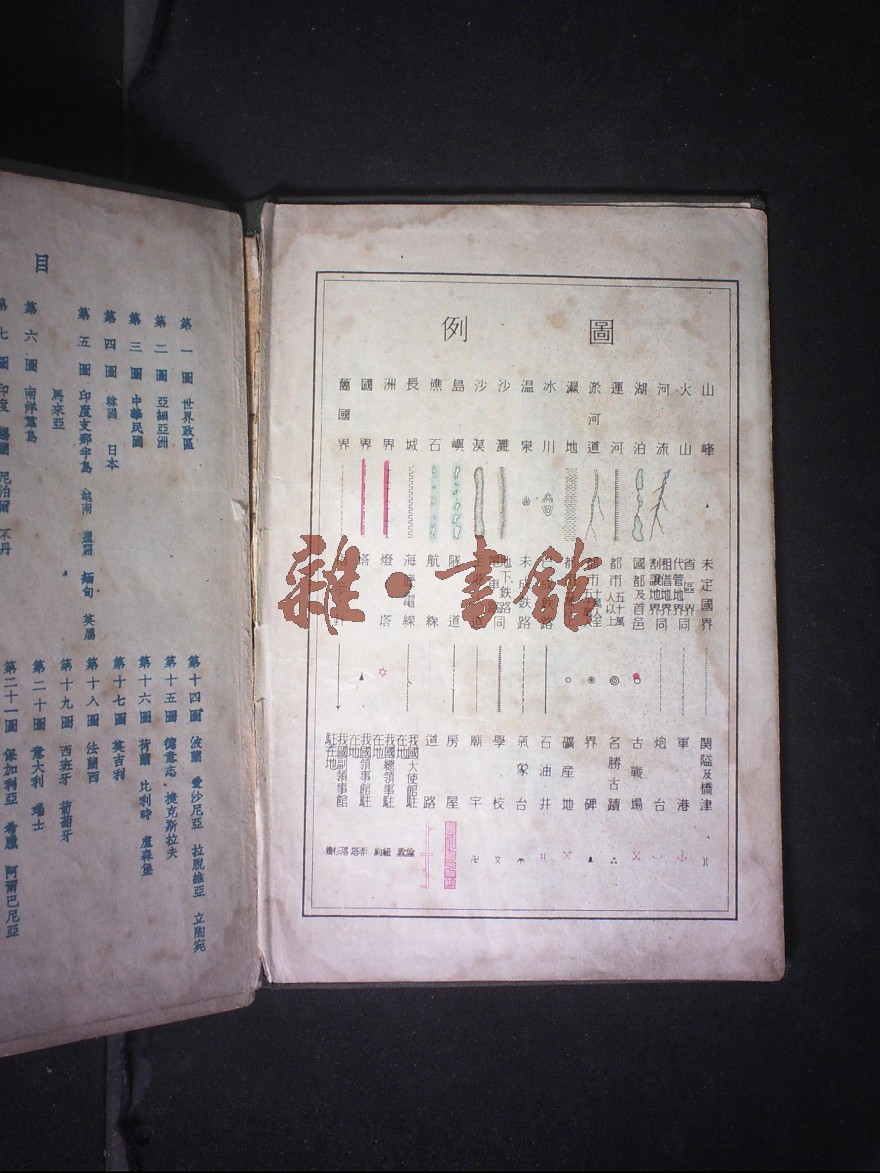 圖例
山峰
火山
河流
湖泊
運河
淤河道
瀑地
冰川
温泉
沙灘
沙漠
島嶼
礁石
長城
洲界
國界
舊國界
未定國界
省區界
代管地界同
租借地界
割讓地界同
國都及首邑
都市五十萬人以上
未成鉄路
地下鉄路同
隧道
航線
海底電線
燈塔
塔
関隘及橋津
軍港
炮台
古戰場
名勝古蹟
界碑
礦産地
石油井
氣象台
學校
廟宇
房屋
道路
我國大使館駐在地
我國總領事館駐在地
我國領事館駐在地
我國副領事館駐在地
雜·書館
目
第一圖 世界政區
第二圖 亞細亞洲
第三圖 中華民國
第四圖 韓國 日本
第五圖 印度支那半島 越南 暹羅 緬甸 英屬
馬來亞
第六圖 南洋羣島
第七圖 印度 錫蘭 尼泊爾 不丹
第十四圖 波蘭 愛沙尼亞 拉脫維亞 立陶宛
第十五圖 德意志 捷克斯拉夫
第十六圖 荷蘭 比利時 盧森堡
第十七圖 英吉利
第十八圖 法蘭西
第十九圖 西班牙 葡萄牙
第二十圖 意大利 瑞士
第二十一圖 保加利亞 希臘 阿爾巴尼亞